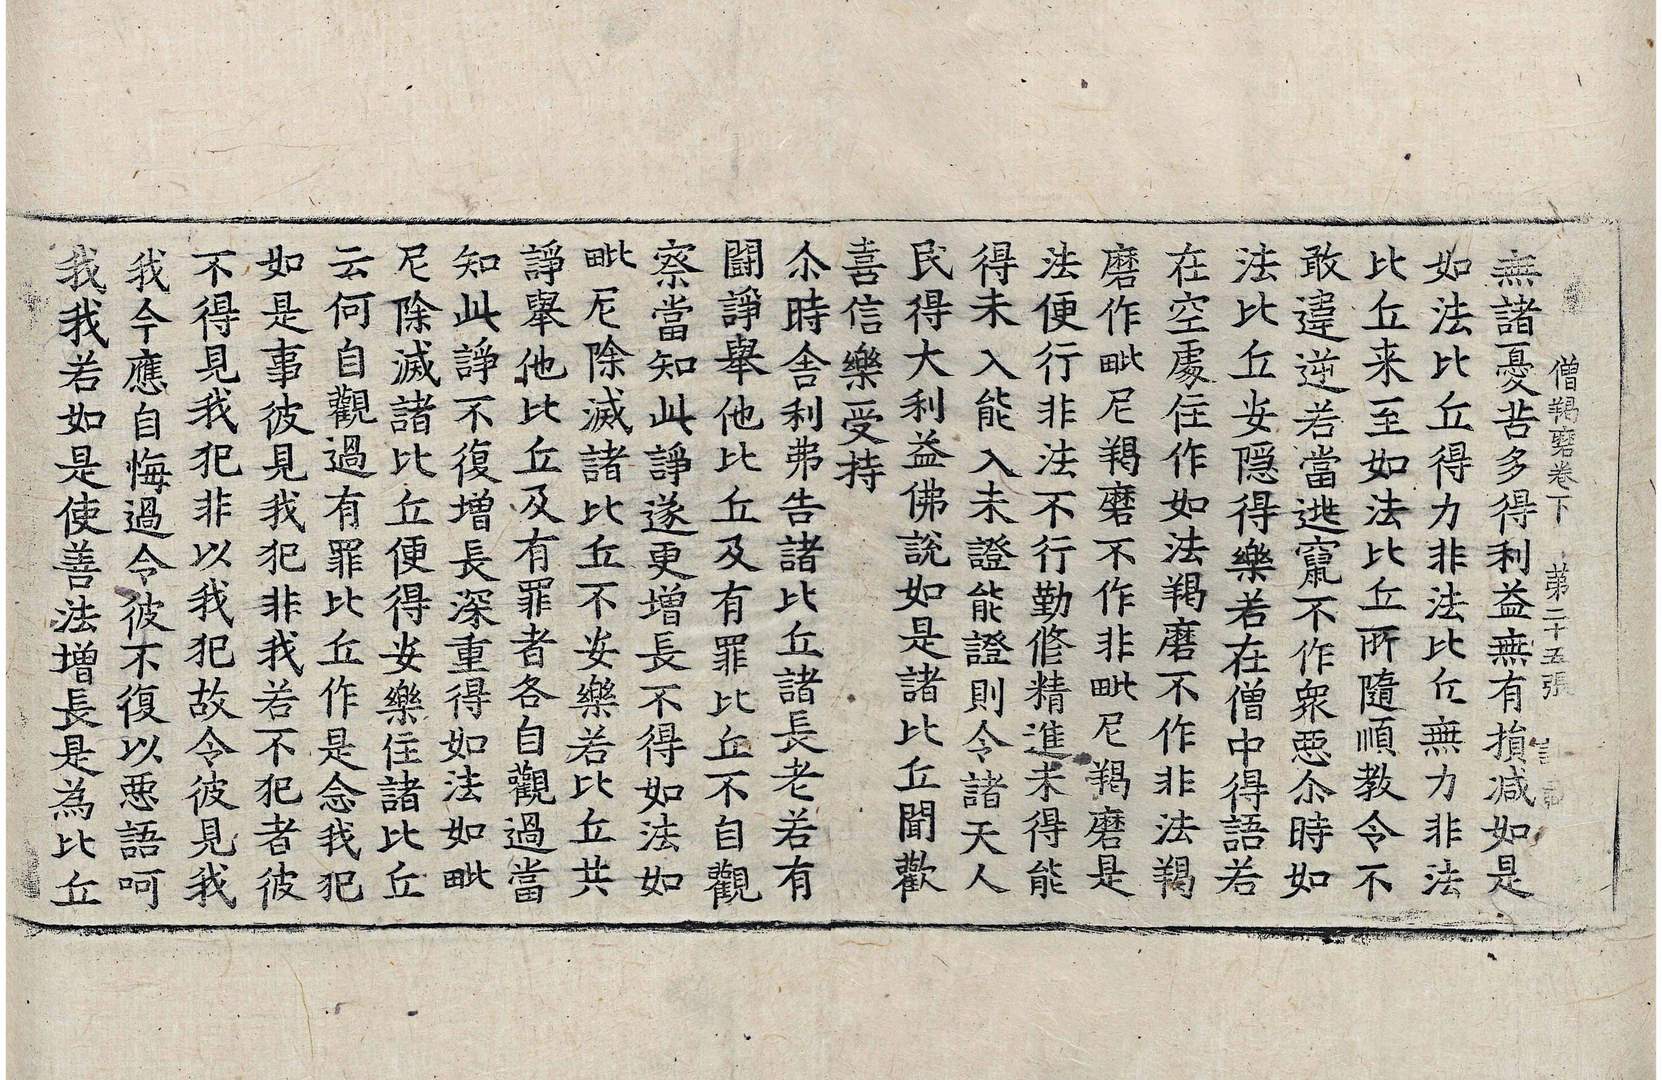 僧羯磨卷下 第二十五張
無諸憂苦多得利益無有損減如是
如法比丘得力非法比丘無力非法
比丘来至如法比丘所隨順教令不
敢違逆若當逃竄不作衆惡尒時如
法比丘安隱得樂若在僧中得語若
在空處住作如法羯磨不作非法羯
磨作毗尼羯磨不作非毗尼羯磨是
法便行非法不行勤修精進未得能
得未入能入未證能證則令諸天人
民得大利益佛說如是諸比丘聞歡
喜信樂受持
尒時舍利弗告諸比丘諸長老若有
闘諍舉他比丘及有罪比丘不自觀
察當知此諍遂更增長不得如法如
毗尼除滅諸比丘不安樂若比丘共
諍舉他比丘及有罪者各自觀過當
知此諍不復增長深重得如法如毗
尼除滅諸比丘便得安樂住諸比丘
云何自觀過有罪比丘作是念我犯
如是事彼見我犯非我若不犯者彼
不得見我犯非以我犯故令彼見我
我今應自悔過令彼不復以惡語呵
我我若如是使善法增長是為比丘